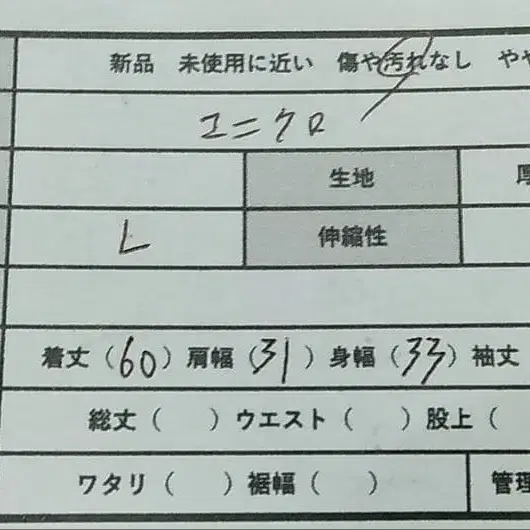 新品 未使用に近い 傷や汚れなし やや
ユニクロ
生地 厚
L 伸縮性
着丈（60）肩幅（31）身幅（33）袖丈
総丈（ ）ウエスト（ ）股上（
ワタリ（ ）裾幅（ ） 管理